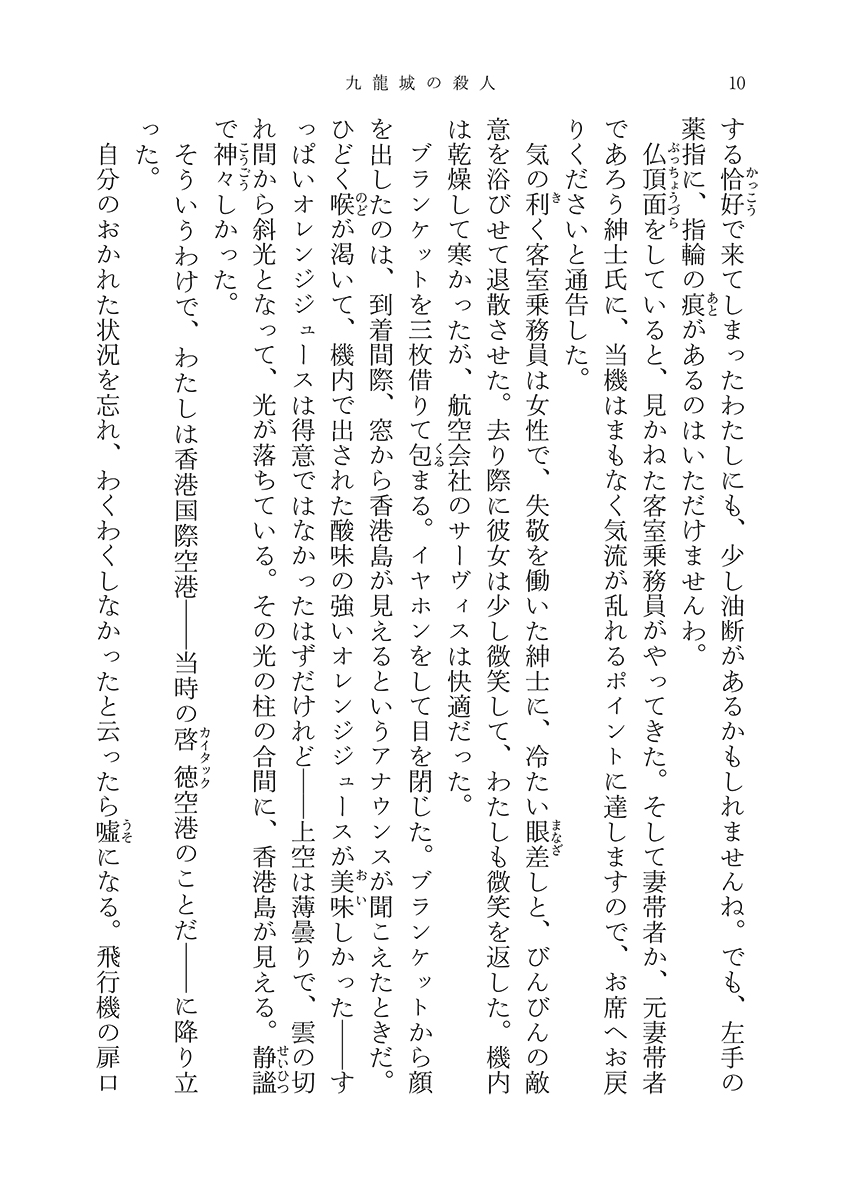 九龍城の殺人
10
する恰好で来てしまったわたしにも、少し油断があるかもしれませんね。でも、左手の
かっこう
薬指に、指輪の痕があるのはいただけませんわ。
あと
仏頂面をしていると、見かねた客室乗務員がやってきた。そして妻帯者か、元妻帯者
ぶっちょうづら
であろう紳士氏に、当機はまもなく気流が乱れるポイントに達しますので、お席へお戻
りくださいと通告した。
気の利く客室乗務員は女性で、失敬を働いた紳士に、冷たい眼差しと、びんびんの敵
き
まなざ
意を浴びせて退散させた。去り際に彼女は少し微笑して、わたしも微笑を返した。機内
は乾燥して寒かったが、航空会社のサーヴィスは快適だった。
ブランケットを三枚借りて包まる。イヤホンをして目を閉じた。ブランケットから顔
くる
を出したのは、到着間際、窓から香港島が見えるというアナウンスが聞こえたときだ。
ひどく喉が渇いて、機内で出された酸味の強いオレンジジュースが美味しかった――す
のど
おい
っぱいオレンジジュースは得意ではなかったはずだけれど――上空は薄曇りで、雲の切
れ間から斜光となって、光が落ちている。その光の柱の合間に、香港島が見える。静謐
せいひつ
で神々しかった。
こうごう
そういうわけで、わたしは香港国際空港――当時の啓徳空港のことだ――に降り立
カイタック
った。
自分のおかれた状況を忘れ、わくわくしなかったと云ったら嘘になる。飛行機の扉口
うそ